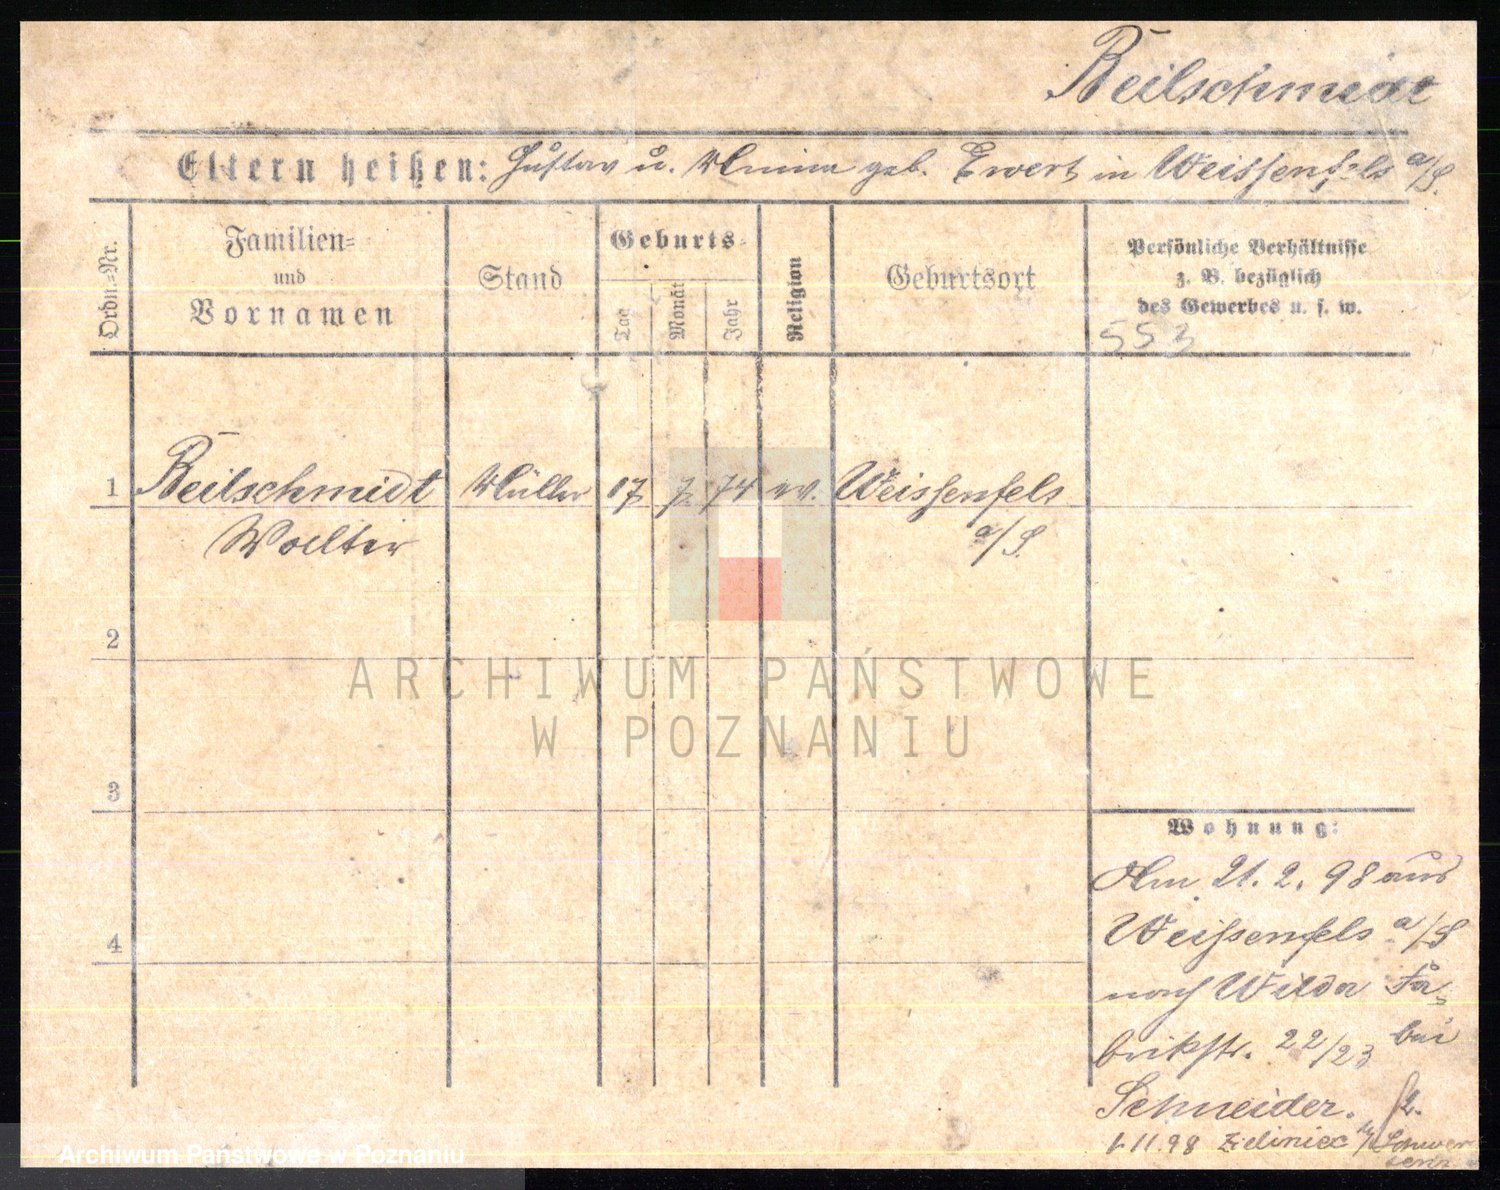 Beilschmidt
Eltern heißen: Gustav u. Minna geb. Ewert in Weissenfels a/S.
Ordn.-Nr.
Familien-
und
Vornamen
Stand
Geburts-
Tag
Monat
Jahr
Religion
Geburtsort
Persönliche Verhältnisse
z. B. bezüglich
des Gewerbes u. s. w.
553
1 Beilschmidt Müller 17 7. 74 ev. Weissenfels
Walter a/S.
2
ARCHIWUM PAŃSTWOWE
W POZNANIU
3
Wohnung:
Am 21. 2. 98 aus
4 Weissenfels a/S
nach Wilda Fa-
brikstr. 22/23 bei
Schneider.
1.11.98 Zieliniec
Archiwum Państwowe w Poznaniu